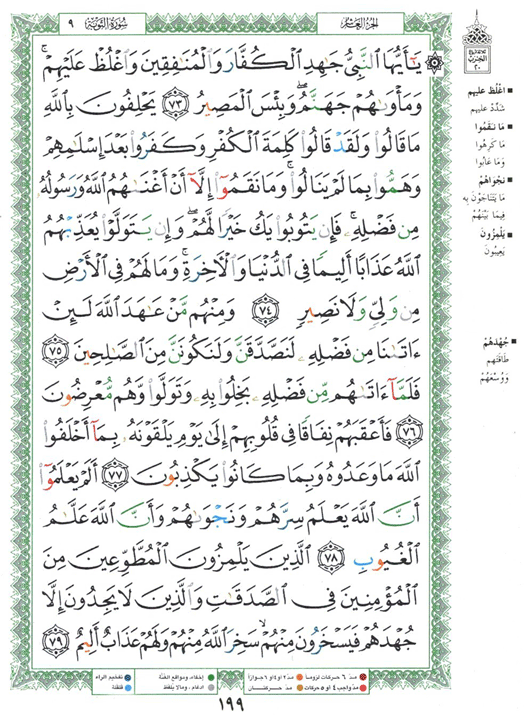 سُورَةُ التَّوْبَةِ ٩
الجُزءُ العَاشِرُ
الحِزْب
٢٠
يَـٰٓأَيُّهَا ٱلنَّبِيُّ جَـٰهِدِ ٱلْكُفَّارَ وَٱلْمُنَـٰفِقِينَ وَٱغْلُظْ عَلَيْهِمْ ۚ
وَمَأْوَىٰهُمْ جَهَنَّمُ ۖ وَبِئْسَ ٱلْمَصِيرُ ٧٣ يَحْلِفُونَ بِٱللَّهِ
مَا قَالُوا۟ وَلَقَدْ قَالُوا۟ كَلِمَةَ ٱلْكُفْرِ وَكَفَرُوا۟ بَعْدَ إِسْلَـٰمِهِمْ
وَهَمُّوا۟ بِمَا لَمْ يَنَالُوا۟ ۚ وَمَا نَقَمُوٓا۟ إِلَّآ أَنْ أَغْنَىٰهُمُ ٱللَّهُ وَرَسُولُهُۥ
مِن فَضْلِهِۦ ۚ فَإِن يَتُوبُوا۟ يَكُ خَيْرًا لَّهُمْ ۖ وَإِن يَتَوَلَّوْا۟ يُعَذِّبْهُمُ
ٱللَّهُ عَذَابًا أَلِيمًا فِى ٱلدُّنْيَا وَٱلْـَٔاخِرَةِ ۚ وَمَا لَهُمْ فِى ٱلْأَرْضِ
مِن وَلِىٍّ وَلَا نَصِيرٍ ٧٤ وَمِنْهُم مَّنْ عَـٰهَدَ ٱللَّهَ لَئِنْ
ءَاتَىٰنَا مِن فَضْلِهِۦ لَنَصَّدَّقَنَّ وَلَنَكُونَنَّ مِنَ ٱلصَّـٰلِحِينَ ٧٥
فَلَمَّآ ءَاتَىٰهُم مِّن فَضْلِهِۦ بَخِلُوا۟ بِهِۦ وَتَوَلَّوا۟ وَّهُم مُّعْرِضُونَ
٧٦ فَأَعْقَبَهُمْ نِفَاقًا فِى قُلُوبِهِمْ إِلَىٰ يَوْمِ يَلْقَوْنَهُۥ بِمَآ أَخْلَفُوا۟
ٱللَّهَ مَا وَعَدُوهُ وَبِمَا كَانُوا۟ يَكْذِبُونَ ٧٧ أَلَمْ يَعْلَمُوٓا۟
أَنَّ ٱللَّهَ يَعْلَمُ سِرَّهُمْ وَنَجْوَىٰهُمْ وَأَنَّ ٱللَّهَ عَلَّـٰمُ
ٱلْغُيُوبِ ٧٨ ٱلَّذِينَ يَلْمِزُونَ ٱلْمُطَّوِّعِينَ مِنَ
ٱلْمُؤْمِنِينَ فِى ٱلصَّدَقَـٰتِ وَٱلَّذِينَ لَا يَجِدُونَ إِلَّا
جُهْدَهُمْ فَيَسْخَرُونَ مِنْهُمْ ۙ سَخِرَ ٱللَّهُ مِنْهُمْ وَلَهُمْ عَذَابٌ أَلِيمٌ ٧٩
■ اغْلُظ عليهم
شَدِّدْ عليهم
■ مَا نَقَمُوا
مَا كَرِهُوا
وَمَا عَابُوا
■ نَجْوَاهُمْ
مَا يَتَنَاجَوْنَ بِهِ
فِيمَا بَيْنَهُمْ
■ يَلْمِزُونَ
يَعِيبُونَ
■ جُهْدَهُمْ
طَاقَتَهُم
وَوُسْعَهُمْ
مدّ ٦ حركات لزوماً مدّ ٢ أو ٤ أو ٦ جوازاً
مدّ واجب ٤ أو ٥ حركات مدّ حركتان
إخفاء، ومواقع الغُنَّة تفخيم الراء
ادغام، ومالا يُلفَظ قلقلة
١٩٩